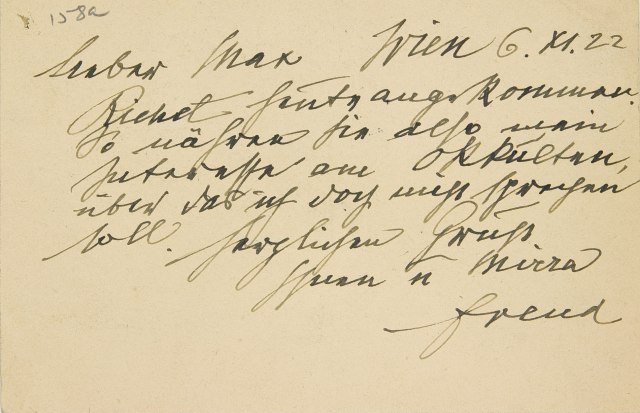 158a
Lieber Max Wien 6. XI. 22
Richet heute angekommen.
So nähren Sie also mein
Interesse am Okkulten,
über das ich doch nicht sprechen
soll. Herzlichen Gruß
Ihnen u Mirra
Freud